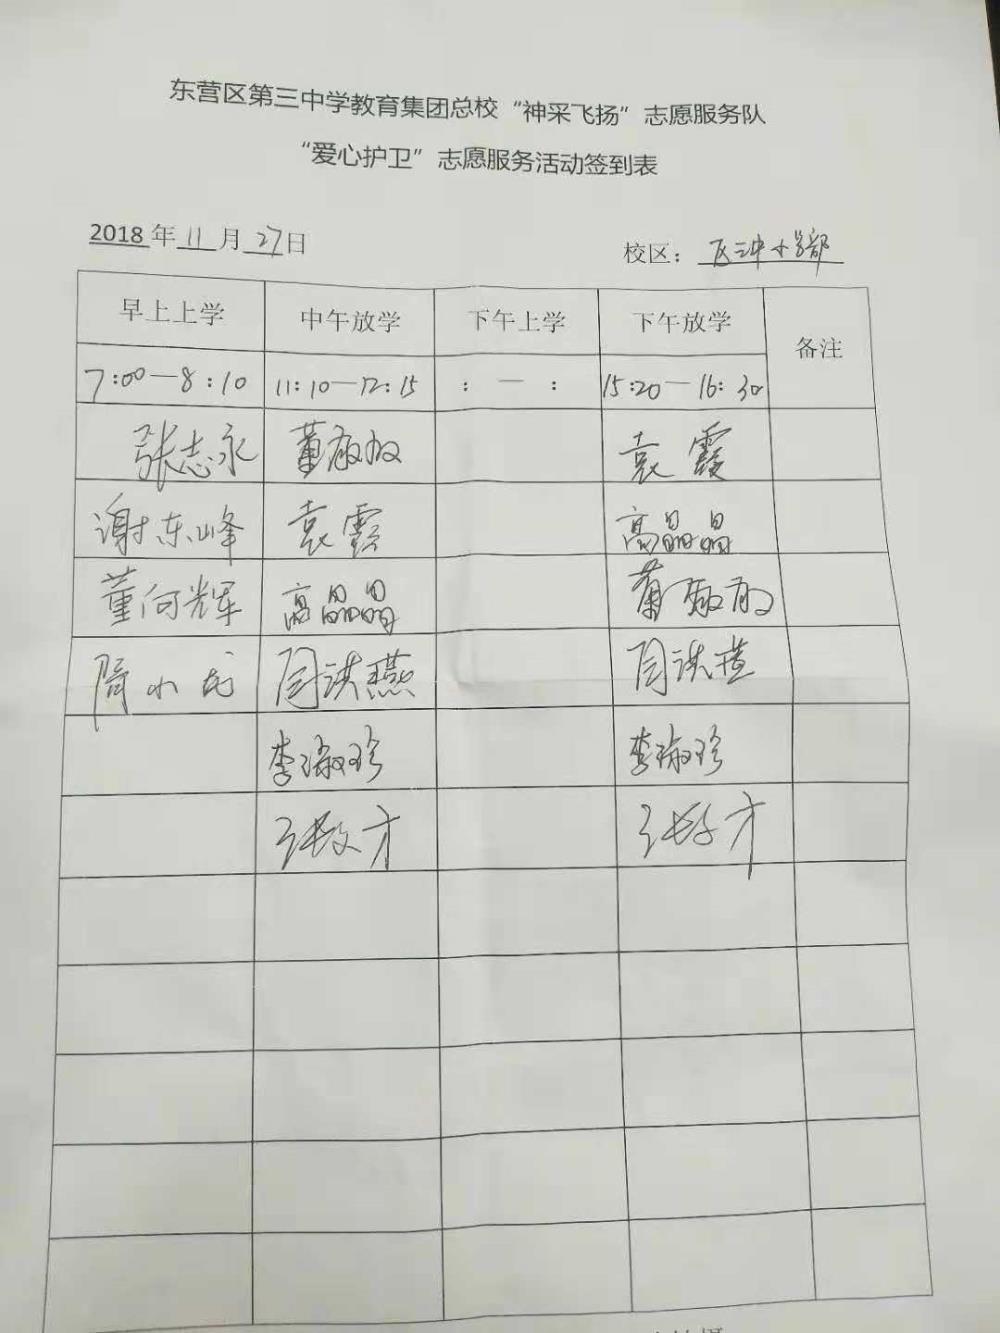 东营区第三中学教育集团总校“神采飞扬”志愿服务队
“爱心护卫”志愿服务活动签到表
2018年11月27日 校区：区三中小学部
早上上学 中午放学 下午上学 下午放学 备注
7:00—8:10 11:10—12:15 : — : 15:20—16:30
张志永 董敏敏 袁霞
谢东峰 袁霞 高晶晶
董向辉 高晶晶 董敏敏
隋小龙 周洪燕 周洪燕
李淑珍 李淑珍
张文才 张才